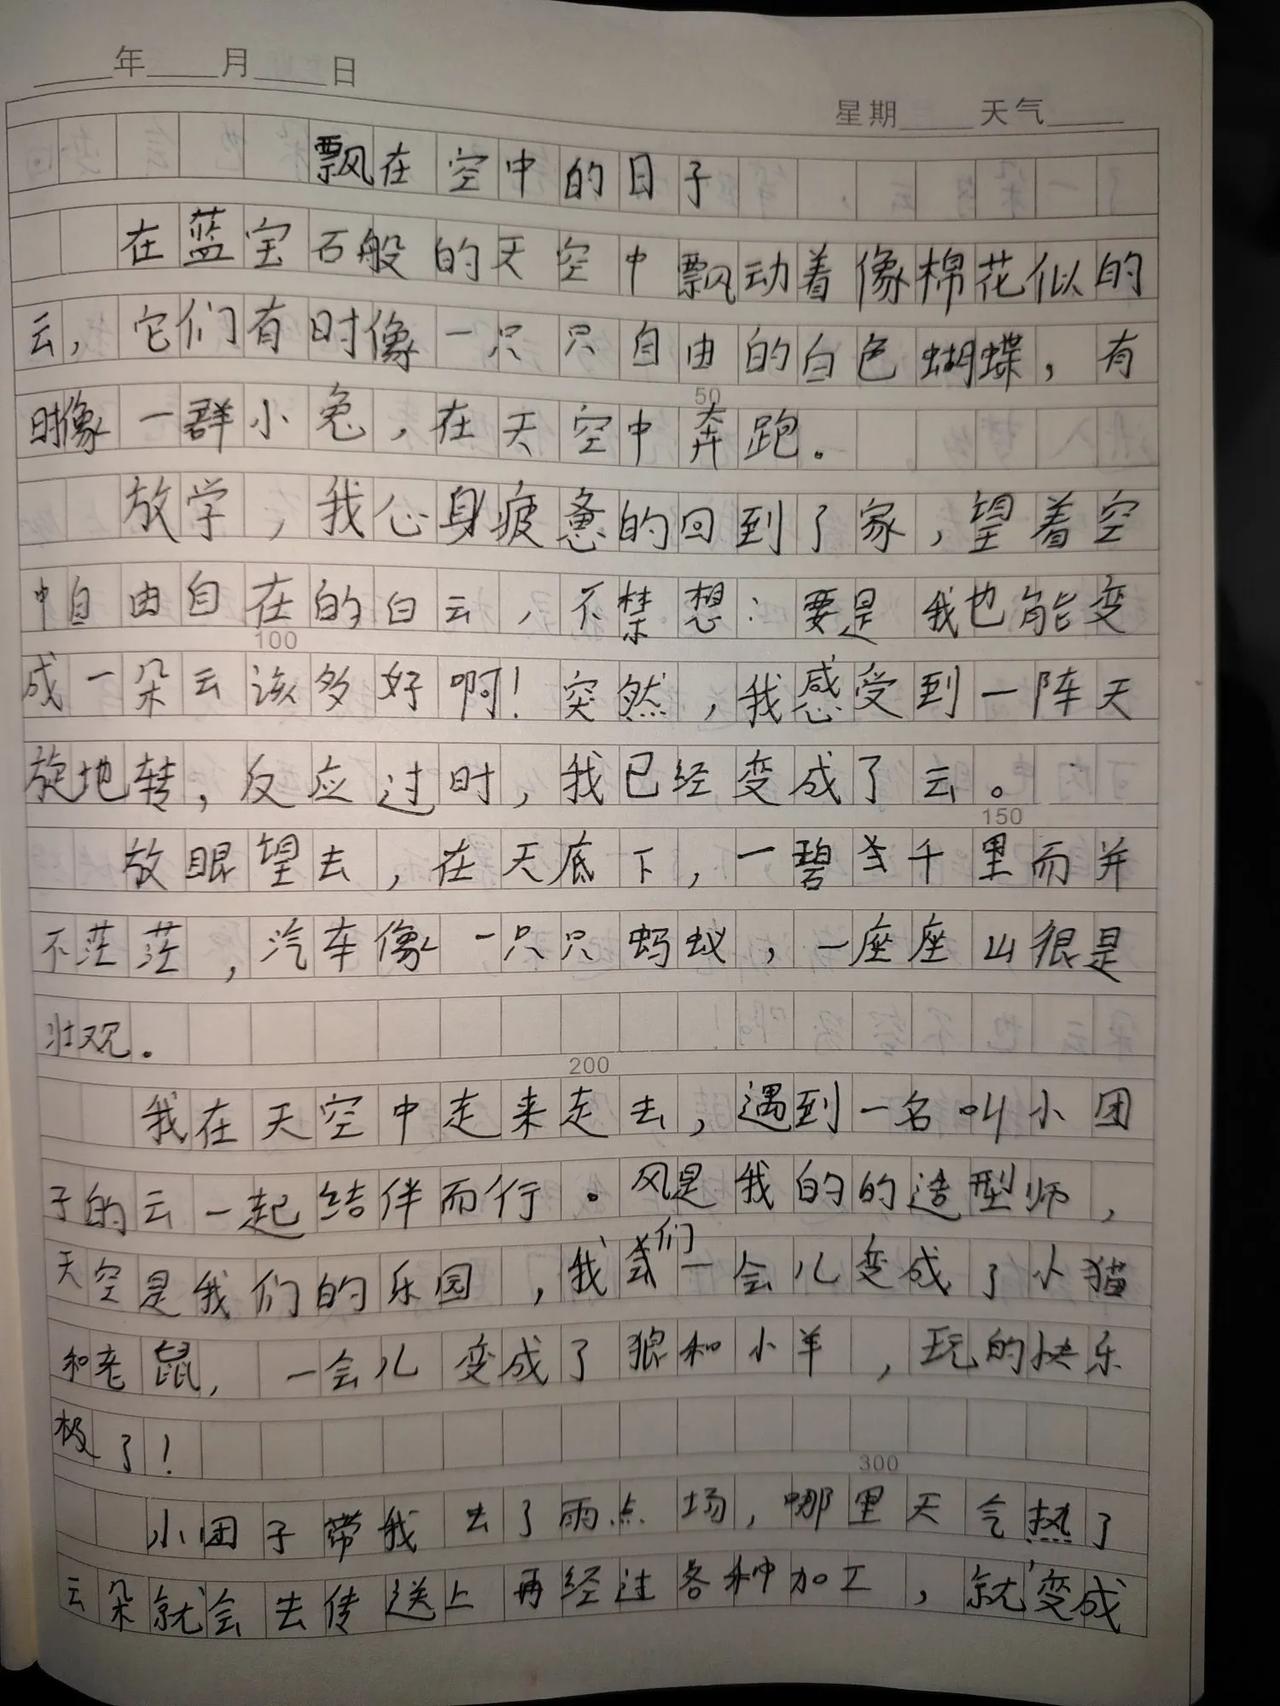 年 月 日
星期 天气
飘在空中的日子
在蓝宝石般的天空中飘动着像棉花似的
云，它们有时像一只只自由的白色蝴蝶，有
50
时像一群小兔，在天空中奔跑。
放学，我心身疲惫的回到了家，望着空
中自由自在的白云，不禁想：要是我也能变
100
成一朵云该多好啊！突然，我感受到一阵天
旋地转，反应过时，我已经变成了云。
150
放眼望去，在天底下，一碧当千里而并
不茫茫，汽车像一只只蚂蚁，一座座山很是
壮观。
200
我在天空中走来走去，遇到一名叫小团
子的云一起结伴而行。风是我的的造型师，
天空是我们的乐园，我们一会儿变成了小猫
和老鼠，一会儿变成了狼和小羊，玩的快乐
极了！
300
小团子带我去了雨点场，哪里天气热了
云朵就会去传送上再经过各种加工，就变成